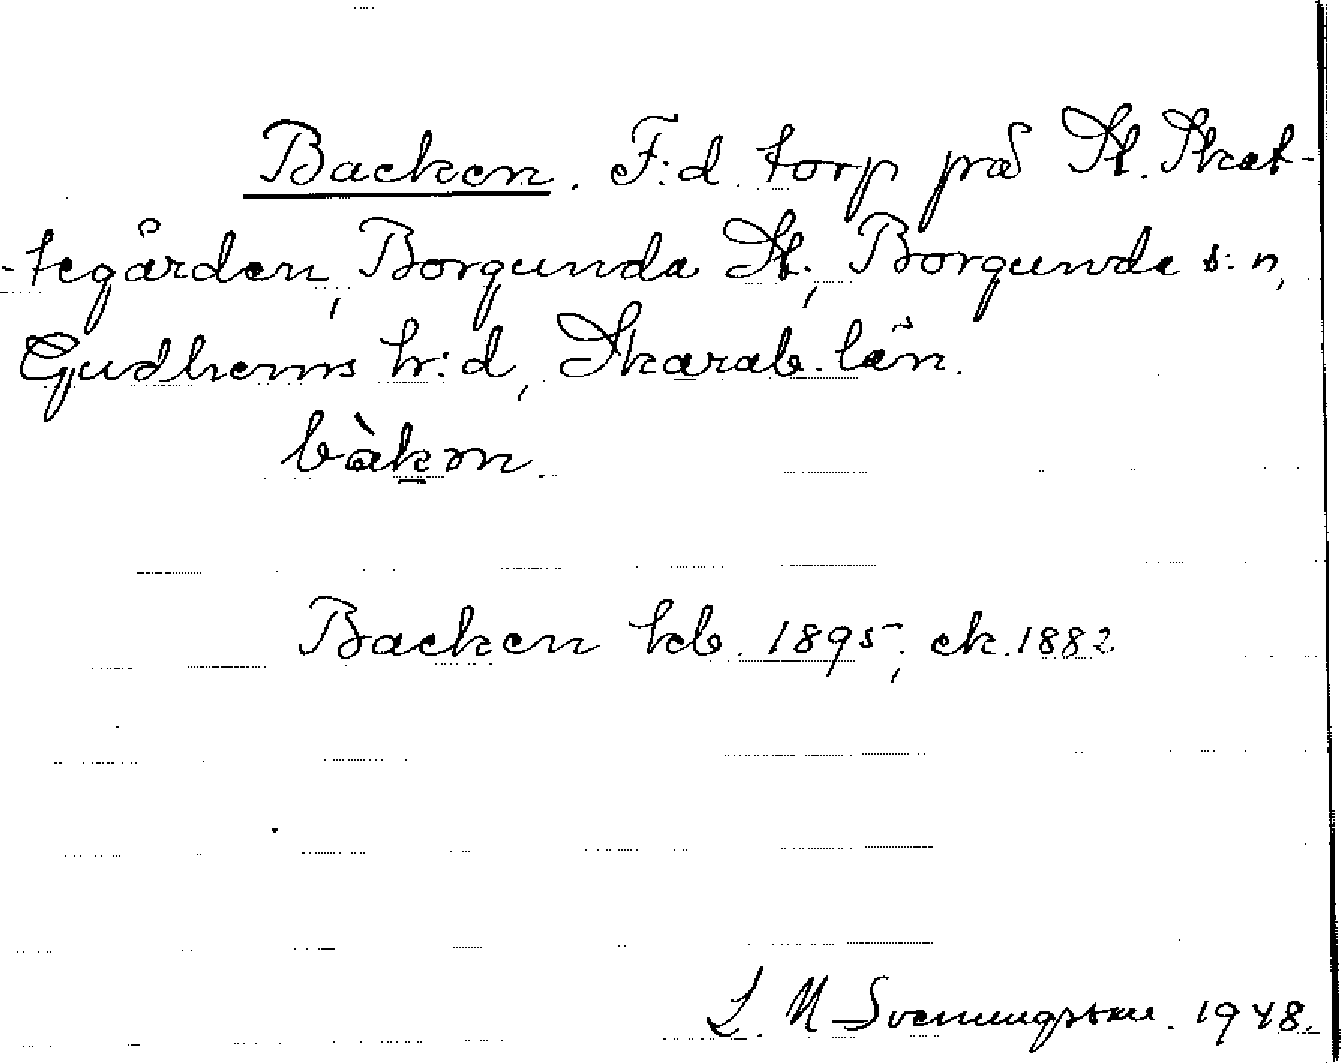 Backen. F.:d. torp på St. Skat-
-tegården, Borgunda St., Borgunda s:n,
Gudhems h:d, Skarab. län.
bàkən.
Backen kb. 1895, ek. 1882
L. N Svenungsson. 1948.